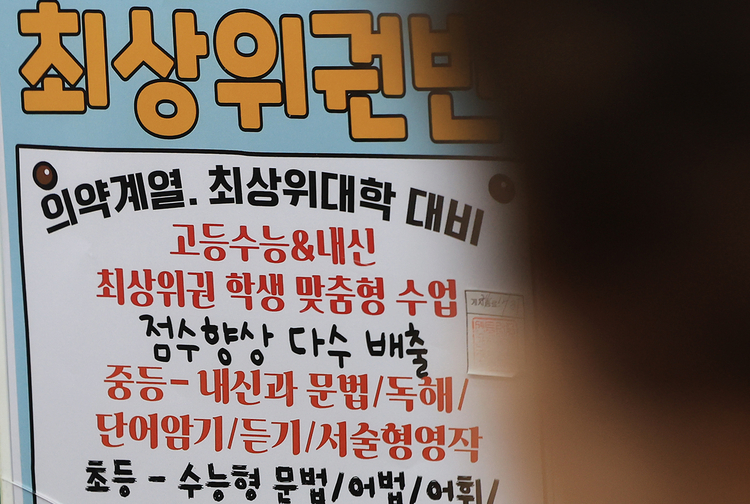 최상위권반
의약계열. 최상위대학 대비
고등수능&내신
최상위권 학생 맞춤형 수업
점수향상 다수 배출
중등- 내신과 문법/독해/
단어암기/듣기/서술형영작
초등 - 수능형 문법/어법/어휘/